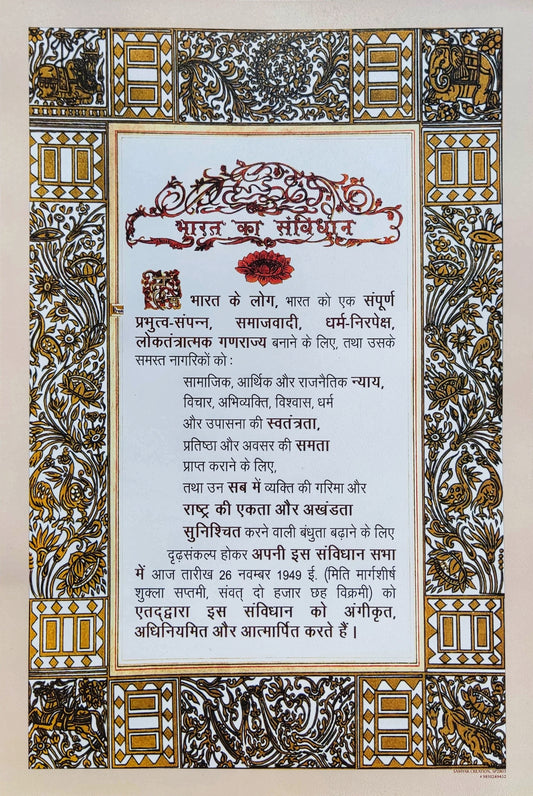 भारत का संविधान
हम भारत के लोग, भारत को एक संपूर्ण
प्रभुत्व-संपन्न, समाजवादी, धर्म-निरपेक्ष,
लोकतंत्रात्मक गणराज्य बनाने के लिए, तथा उसके
समस्त नागरिकों को :
सामाजिक, आर्थिक और राजनैतिक न्याय,
विचार, अभिव्यक्ति, विश्वास, धर्म
और उपासना की स्वतंत्रता,
प्रतिष्ठा और अवसर की समता
प्राप्त कराने के लिए,
तथा उन सब में व्यक्ति की गरिमा और
राष्ट्र की एकता और अखंडता
सुनिश्चित करने वाली बंधुता बढ़ाने के लिए
दृढ़संकल्प होकर अपनी इस संविधान सभा
में आज तारीख 26 नवम्बर 1949 ई. (मिति मार्गशीर्ष
शुक्ला सप्तमी, संवत् दो हजार छह विक्रमी) को
एतद्द्वारा इस संविधान को अंगीकृत,
अधिनियमित और आत्मार्पित करते हैं ।
SAMYAK CREATION,